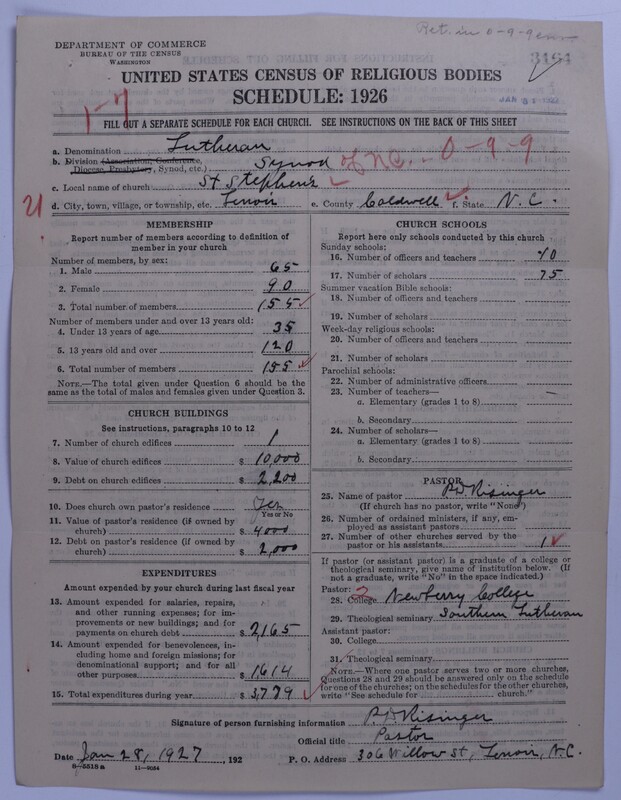 Ret. in 0-9-9
3164
DEPARTMENT OF COMMERCE
BUREAU OF THE CENSUS
WASHINGTON
UNITED STATES CENSUS OF RELIGIOUS BODIES
SCHEDULE: 1926
1-7
FILL OUT A SEPARATE SCHEDULE FOR EACH CHURCH. SEE INSTRUCTIONS ON THE BACK OF THIS SHEET
a. Denomination Lutheran
b. Division (Association, Conference, Diocese, Presbytery, Synod, etc.) Synod of N.C. 0-9-9
c. Local name of church St Stephens
21
d. City, town, village, or township, etc. Lenoir e. County Caldwell f. State N.C.
MEMBERSHIP
Report number of members according to definition of
member in your church
Number of members, by sex:
1. Male 65
2. Female 90
3. Total number of members 155
Number of members under and over 13 years old:
4. Under 13 years of age 35
5. 13 years old and over 120
6. Total number of members 155
NOTE.—The total given under Question 6 should be the
same as the total of males and females given under Question 3.
CHURCH BUILDINGS
See instructions, paragraphs 10 to 12
7. Number of church edifices 1
8. Value of church edifices $ 10,000
9. Debt on church edifices $ 2,200
10. Does church own pastor's residence Yes
Yes or No
11. Value of pastor's residence (if owned by
church) $ 4000
12. Debt on pastor's residence (if owned by
church) $ 2,000
EXPENDITURES
Amount expended by your church during last fiscal year
13. Amount expended for salaries, repairs,
and other running expenses; for im-
provements or new buildings; and for
payments on church debt $ 2,165
14. Amount expended for benevolences, in-
cluding home and foreign missions; for
denominational support; and for all
other purposes $ 1614
15. Total expenditures during year $ 3,779
CHURCH SCHOOLS
Report here only schools conducted by this church
Sunday schools:
16. Number of officers and teachers 10
17. Number of scholars 75
Summer vacation Bible schools:
18. Number of officers and teachers
19. Number of scholars
Week-day religious schools:
20. Number of officers and teachers
21. Number of scholars
Parochial schools:
22. Number of administrative officers
23. Number of teachers—
a. Elementary (grades 1 to 8)
b. Secondary
24. Number of scholars—
a. Elementary (grades 1 to 8)
b. Secondary
PASTOR
25. Name of pastor P.D. Risinger
(If church has no pastor, write "None")
26. Number of ordained ministers, if any, em-
ployed as assistant pastors
27. Number of other churches served by the
pastor or his assistants 1
If pastor (or assistant pastor) is a graduate of a college or
theological seminary, give name of institution below. (If
not a graduate, write "No" in the space indicated.)
Pastor: 2
28. College Newberry College
29. Theological seminary Southern Lutheran
Assistant pastor:
30. College
31. Theological seminary
NOTE.—Where one pastor serves two or more churches,
Questions 28 and 29 should be answered only on the schedule
for one of the churches; on the schedules for the other churches,
write "See schedule for church."
Signature of person furnishing information P.D. Risinger
Official title Pastor
Date Jan 28, 1927, 192 P. O. Address 306 Willow St, Lenoir, N.C.
8—5515 a 11—9064